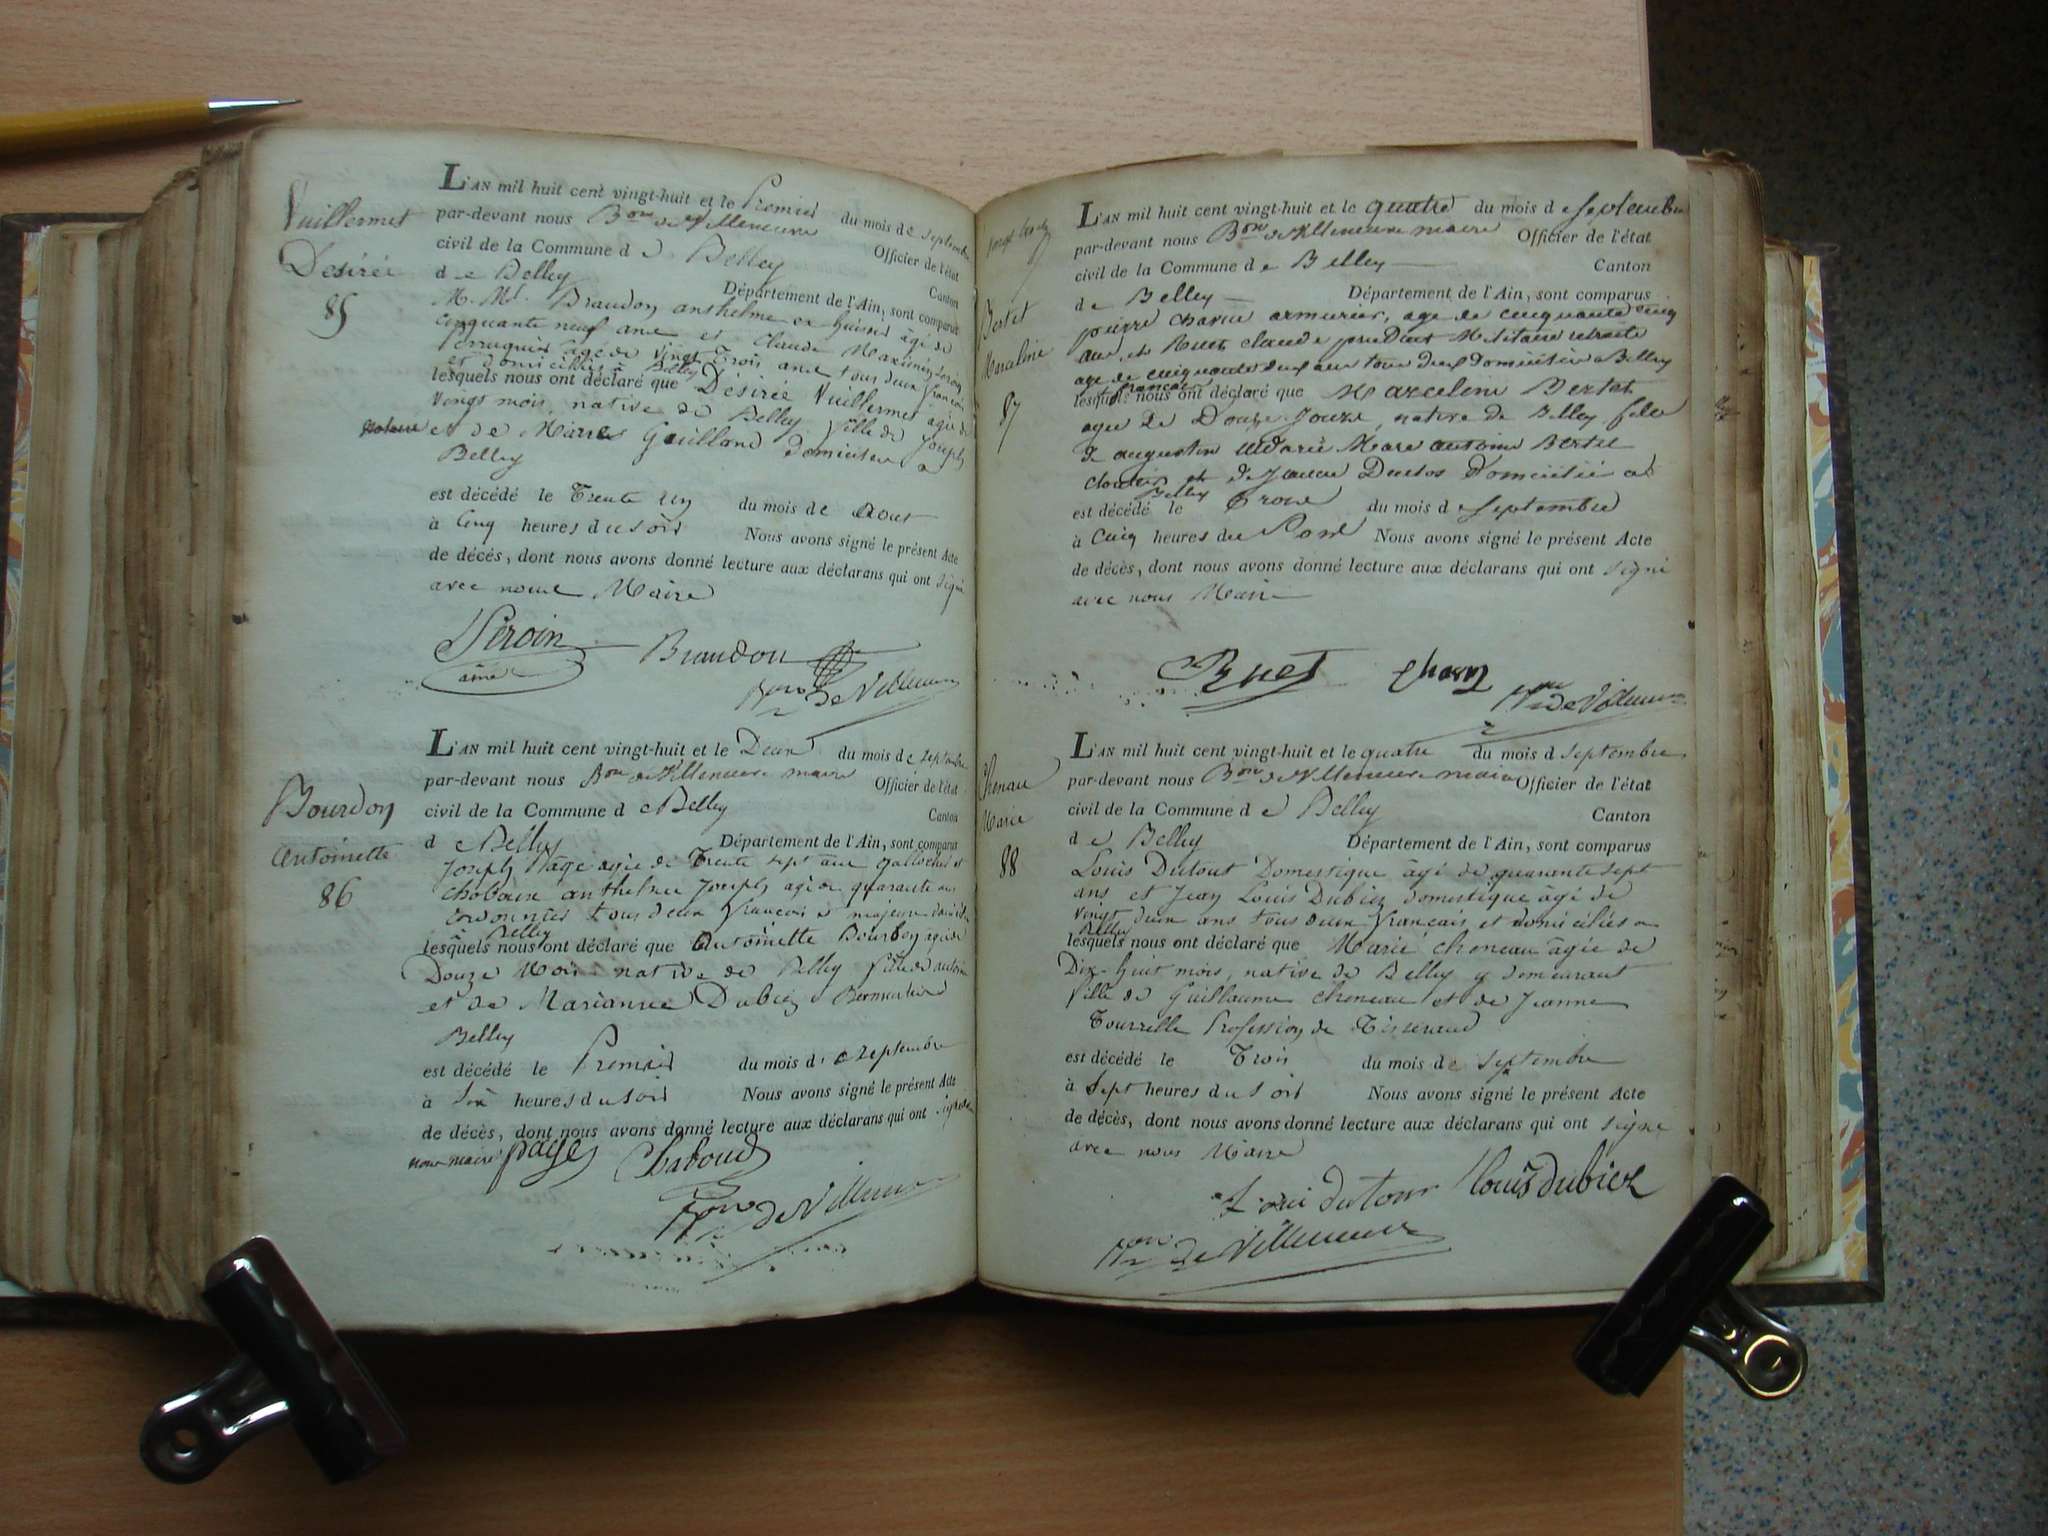 Vuillermet
Desirée
85
L'AN mil huit cent vingt-huit et le Premier du mois de Septembre
par-devant nous Bon de Villeneuve Officier de l'état
civil de la Commune de Belley Canton
de Belley Département de l'Ain, sont comparus
M. Me. Braudon anthelme ex huissier âgé de
cinquante neuf ans et Claude Maximin
Perruquier âgé de vingt trois ans tous deux français
et domiciliés à Belley
lesquels nous ont déclaré que Désirée Vuillermet agée de
vingt mois, native de Belley fille de Joseph
et de Marie Guilland domiciliés a
Belley
est décédé le Trente un du mois de Aout
à Cinq heures du soir Nous avons signé le présent Acte
de décès, dont nous avons donné lecture aux déclarans qui ont signé
avec nous Maire
Seroin
ainé
Braudon
Bon de Villeneuve
Bourdon
Antoinette
86
L'AN mil huit cent vingt-huit et le Deux du mois de Septembre
par-devant nous Bon de Villeneuve maire Officier de l'état
civil de la Commune de Belley Canton
de Belley Département de l'Ain, sont comparus
Joseph Page agé de Trente sept ans et
anthelme Joseph agé de quarante ans
cordonnier tous deux français et majeurs
à Belley
lesquels nous ont déclaré que Antoinette Bourdon agée de
Douze Mois native de Belley fille de
et de Marianne Dubiez
Belley
est décédé le Premier du mois de Septembre
à Six heures du soir Nous avons signé le présent Acte
de décès, dont nous avons donné lecture aux déclarans qui ont signé
nous maire page Chaboud
Bon de Villeneuve
Bertet
Marceline
87
L'AN mil huit cent vingt-huit et le quatre du mois de Septembre
par-devant nous Bon de Villeneuve maire Officier de l'état
civil de la Commune de Belley Canton
de Belley Département de l'Ain, sont comparus
pierre Charve armurier, age de cinquante cinq
ans, et Buet claude Militaire retraité
age de cinquante deux ans tous deux domiciliés a Belley
français
lesquels nous ont déclaré que Marceline Bertet
agée de Douze Jours, native de Belley fille
de augustin Marie Marc antoine Bertet
et de Jeanne Duclos Domicilié a
Belley
est décédé le Trois du mois de Septembre
à Cinq heures du Nous avons signé le présent Acte
de décès, dont nous avons donné lecture aux déclarans qui ont signé
avec nous Maire
Buet Charve
Bon de Villeneuve
Cheneau
Marie
88
L'AN mil huit cent vingt-huit et le quatre du mois d Septembre
par-devant nous Bon de Villeneuve maire Officier de l'état
civil de la Commune de Belley Canton
de Belley Département de l'Ain, sont comparus
Louis Dutour Domestique âgé de quarante sept
ans et Jean Louis Dubiez domestique âgé de
vingt deux ans tous deux français et domiciliés a
Belley
lesquels nous ont déclaré que Marie Cheneau âgée de
Dix-huit mois, native de Belley y demeurant
fille de Guillaume Cheneau et de Jeanne
Tourrelle Profession de Tisserand
est décédé le Trois du mois de Septembre
à Sept heures du Soir Nous avons signé le présent Acte
de décès, dont nous avons donné lecture aux déclarans qui ont signé
avec nous Maire
Loui dutour louis dubiez
Bon de Villeneuve